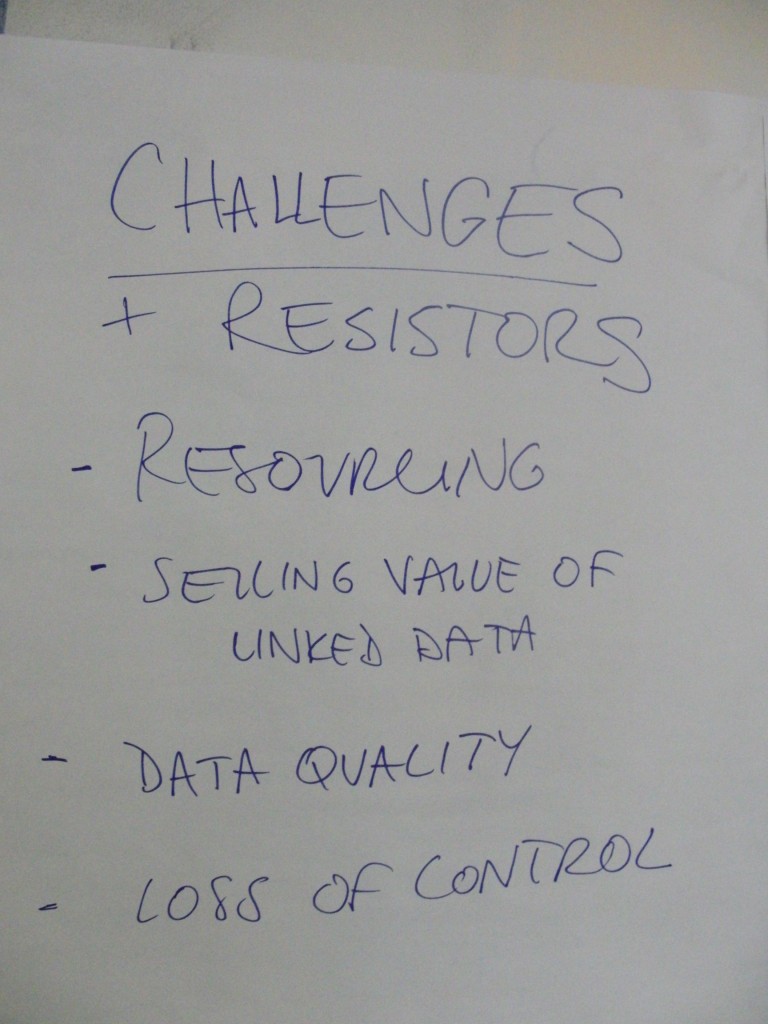 CHALLENGES
+ RESISTORS
- RESOURCING
- SELLING VALUE OF
LINKED DATA
- DATA QUALITY
- LOSS OF CONTROL